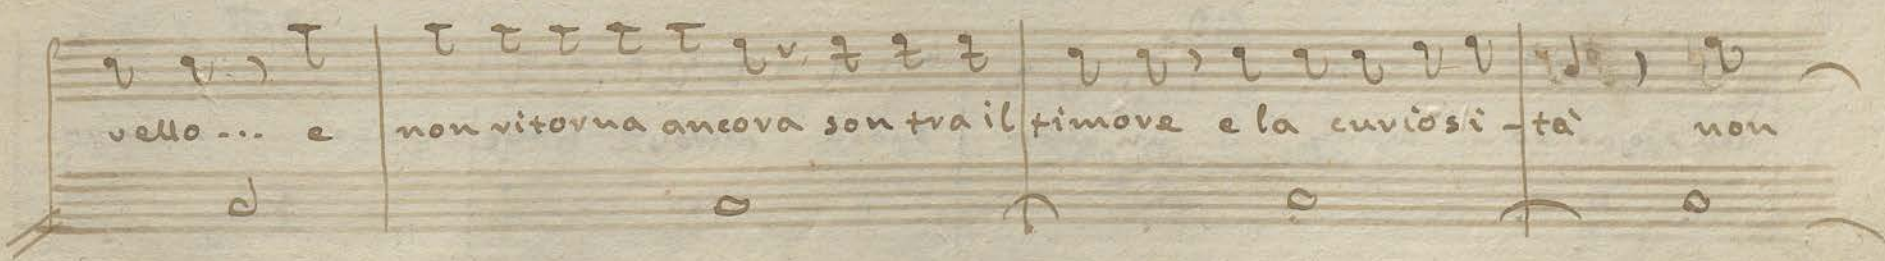 vello... e non ritorna ancora son tra il timore e la curiosi-tà non